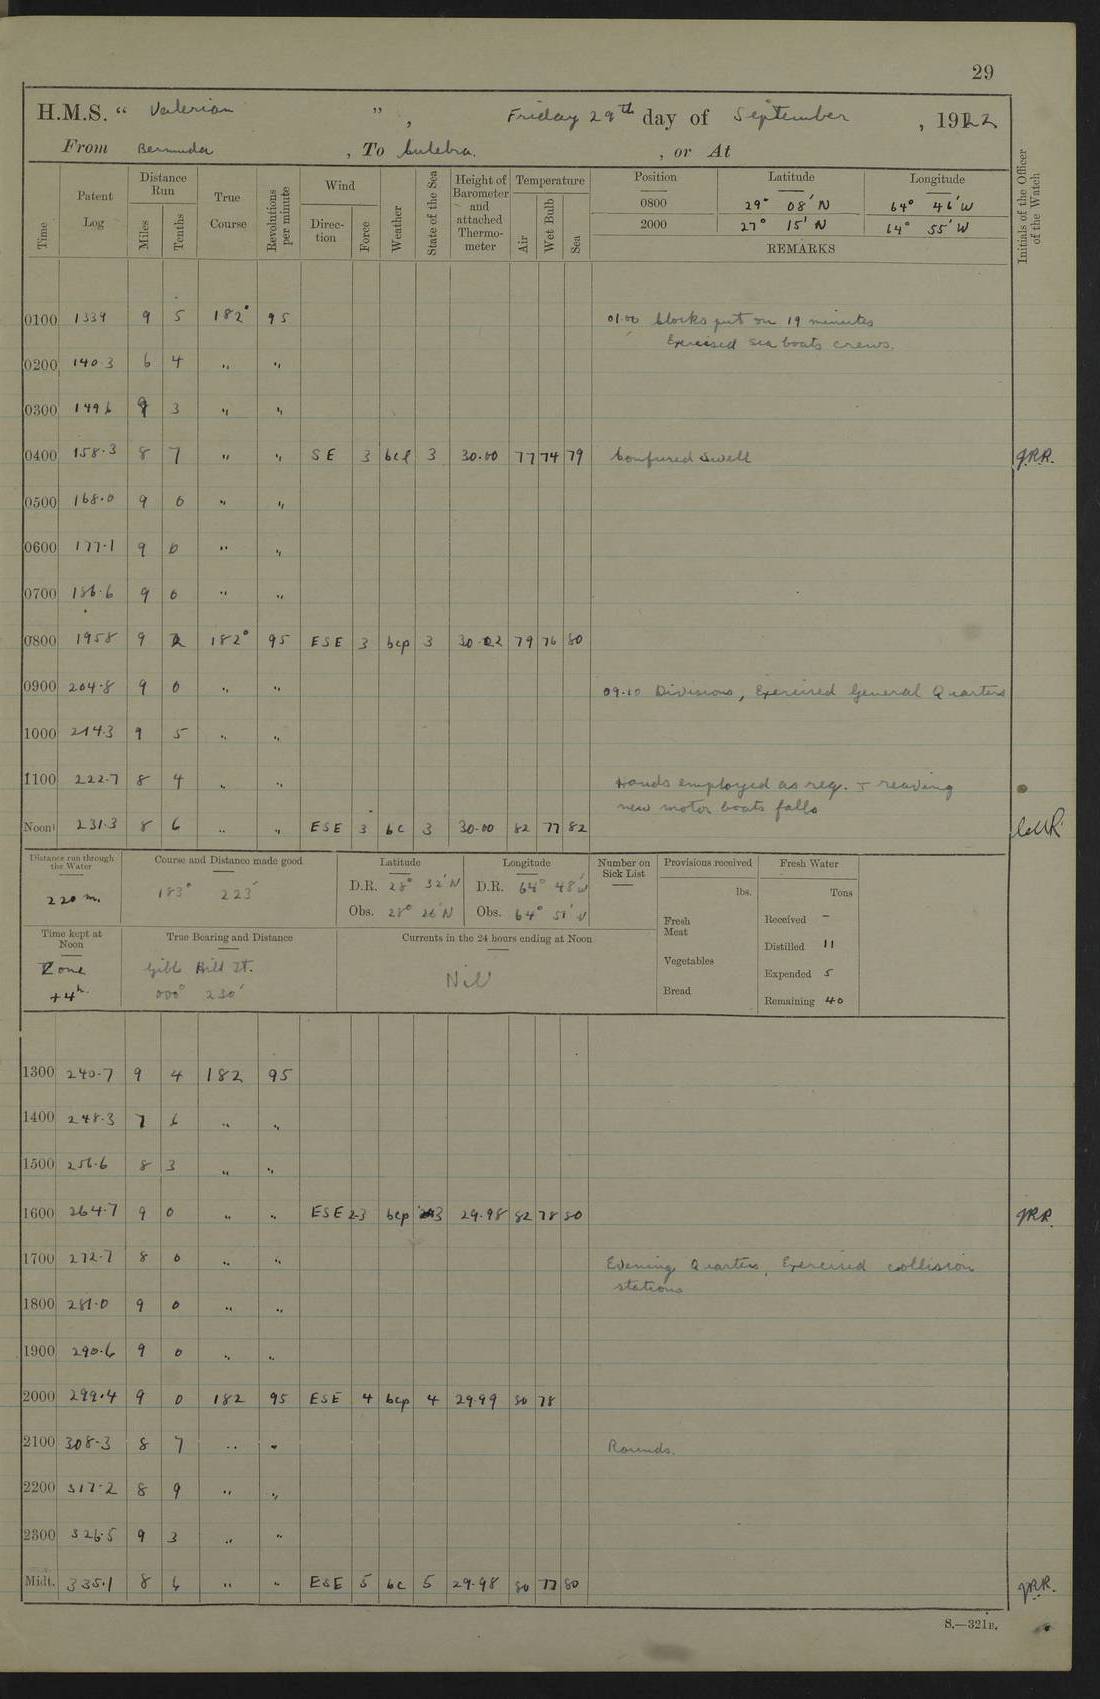 29
H.M.S. “ Valerian ” , Friday 29th day of September , 1922
From Bermuda , To Culebra. , or At
Time Patent Log Distance Run Miles Tenths True Course Revolutions per minute Wind Direction Force Weather State of the Sea Height of Barometer and attached Thermometer Temperature Air Wet Bulb Sea Position Latitude Longitude Initials of the Officer of the Watch
0800 29° 08' N 64° 46' W
2000 27° 15' N 64° 55' W
REMARKS
0100 1339 9 5 182° 95 01.00 Clocks put on 19 minutes
Exercised sea boats crews.
0200 140.3 6 4 " "
0300 1496 9 3 " "
0400 158.3 8 7 " " SE 3 bcl 3 30.00 77 74 79 Confused swell J.R.R.
0500 168.0 9 0 " "
0600 177.1 9 0 " "
0700 186.6 9 0 " "
0800 1958 9 2 182° 95 ESE 3 bcp 3 30.02 79 76 80
0900 204.8 9 0 " " 09.10 Divisions, Exercised General Quarters
1000 214.3 9 5 " "
1100 222.7 8 4 " " Hands employed as req. + reaving
new motor boats falls
Noon 231.3 8 6 " " ESE 3 bc 3 30.00 82 77 82
Distance run through the Water Course and Distance made good Latitude Longitude Number on Sick List Provisions received Fresh Water
220 m. 183° 223' D.R. 28° 32' N D.R. 64° 48' W lbs. Tons
Obs. 28° 26' N Obs. 64° 51' W Fresh Meat Received -
Time kept at Noon True Bearing and Distance Currents in the 24 hours ending at Noon Distilled 11
Zone Gibbs Hill Lt. Nil Vegetables Expended 5
+4h. 000° 230' Bread Remaining 40
1300 240.7 9 4 182 95
1400 248.3 7 6 " "
1500 256.6 8 3 " "
1600 264.7 9 0 " " ESE 2-3 bcp 3 29.98 82 78 80 J.R.R.
1700 272.7 8 0 " " Evening Quarters, Exercised collision
stations
1800 281.0 9 0 " "
1900 290.6 9 0 " "
2000 299.4 9 0 182 95 ESE 4 bcp 4 29.99 80 78
2100 308.3 8 7 " " Rounds.
2200 317.2 8 9 " "
2300 326.5 9 3 " "
Midt. 335.1 8 6 " " ESE 5 bc 5 29.98 80 77 80 J.R.R.
S.—321B.